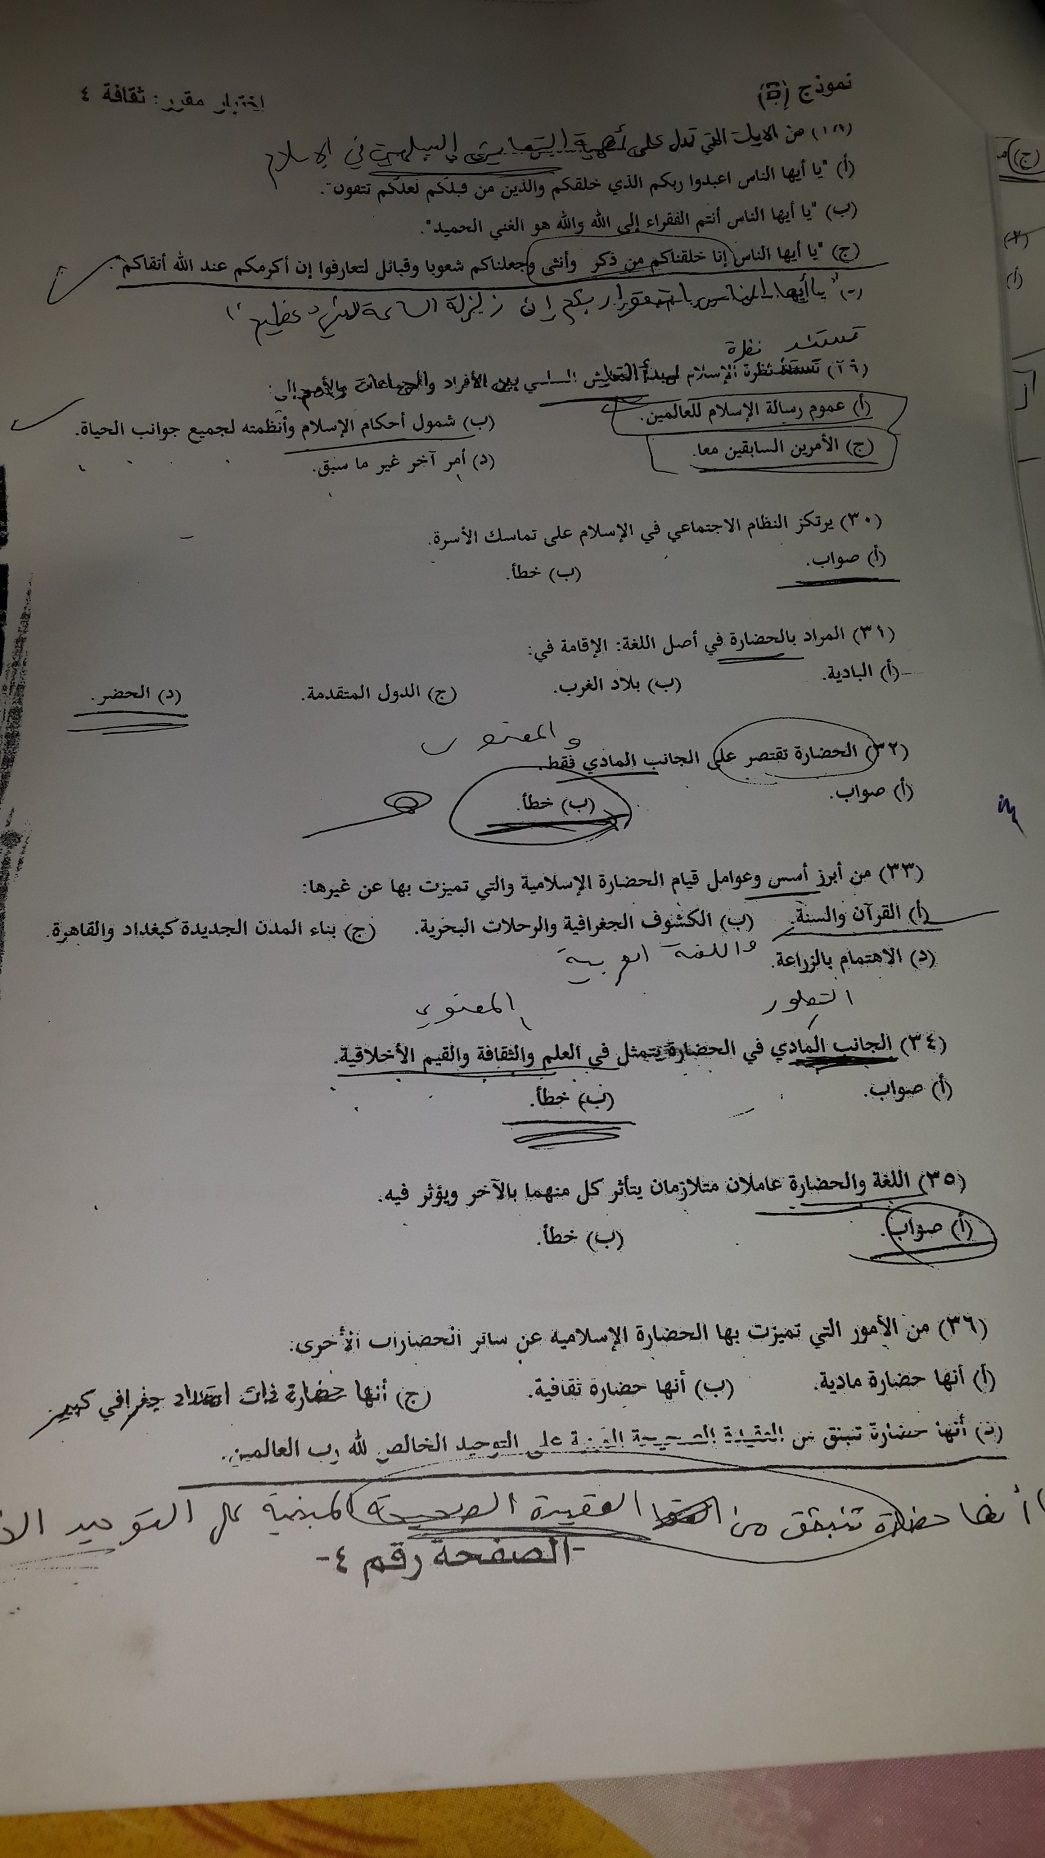 نموذج (B)
اختبار مقرر: ثقافة ٤
من الآيات التي تدل على أهمية التعايش السلمي في الإسلام
(أ) "يا أيها الناس اعبدوا ربكم الذي خلقكم والذين من قبلكم لعلكم تتقون".
(ب) "يا أيها الناس أنتم الفقراء إلى الله والله هو الغني الحميد".
(ج) "يا أيها الناس إنا خلقناكم من ذكر وأنثى وجعلناكم شعوبا وقبائل لتعارفوا إن أكرمكم عند الله أتقاكم".
"يا أيها الناس اتقوا ربكم إن زلزلة الساعة شيء عظيم"
تستند نظرة
(٢٩) تستند نظرة الإسلام لمبدأ التعايش السلمي بين الأفراد والجماعات والأمم إلى:
(أ) عموم رسالة الإسلام للعالمين. (ب) شمول أحكام الإسلام وأنظمته لجميع جوانب الحياة.
(ج) الأمرين السابقين معا. (د) أمر آخر غير ما سبق.
(٣٠) يرتكز النظام الاجتماعي في الإسلام على تماسك الأسرة.
(أ) صواب. (ب) خطأ.
(٣١) المراد بالحضارة في أصل اللغة: الإقامة في:
(أ) البادية. (ب) بلاد الغرب. (ج) الدول المتقدمة. (د) الحضر.
والمعنوي
(٣٢) الحضارة تقتصر على الجانب المادي فقط.
(أ) صواب. (ب) خطأ.
(٣٣) من أبرز أسس وعوامل قيام الحضارة الإسلامية والتي تميزت بها عن غيرها:
(أ) القرآن والسنة. (ب) الكشوف الجغرافية والرحلات البحرية. (ج) بناء المدن الجديدة كبغداد والقاهرة.
(د) الاهتمام بالزراعة. واللغة العربية
التطور المعنوي
(٣٤) الجانب المادي في الحضارة يتمثل في العلم والثقافة والقيم الأخلاقية.
(أ) صواب. (ب) خطأ.
(٣٥) اللغة والحضارة عاملان متلازمان يتأثر كل منهما بالآخر ويؤثر فيه.
(أ) صواب. (ب) خطأ.
(٣٦) من الأمور التي تميزت بها الحضارة الإسلامية عن سائر الحضارات الأخرى:
(أ) أنها حضارة مادية. (ب) أنها حضارة ثقافية. (ج) أنها حضارة ذات امتداد جغرافي كبير
(د) أنها حضارة تنبثق من العقيدة الصحيحة المبنية على التوحيد الخالص لله رب العالمين.
أنها حضارة تنبثق من العقيدة الصحيحة المبنية على التوحيد
-الصفحة رقم ٤-